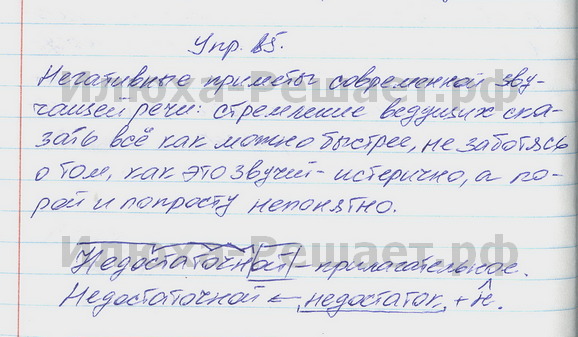 Упр. 85.
Негативные приметы современной зву-
чащей речи: стремление ведущих ска-
зать всё как можно быстрее, не заботясь
о том, как это звучит - истерично, а по-
рой и попросту непонятно.
Илюха-Решает.рф
Недостаточной - прилагательное.
Недостаточной ← недостаток + н.
Илюха-Решает.рф